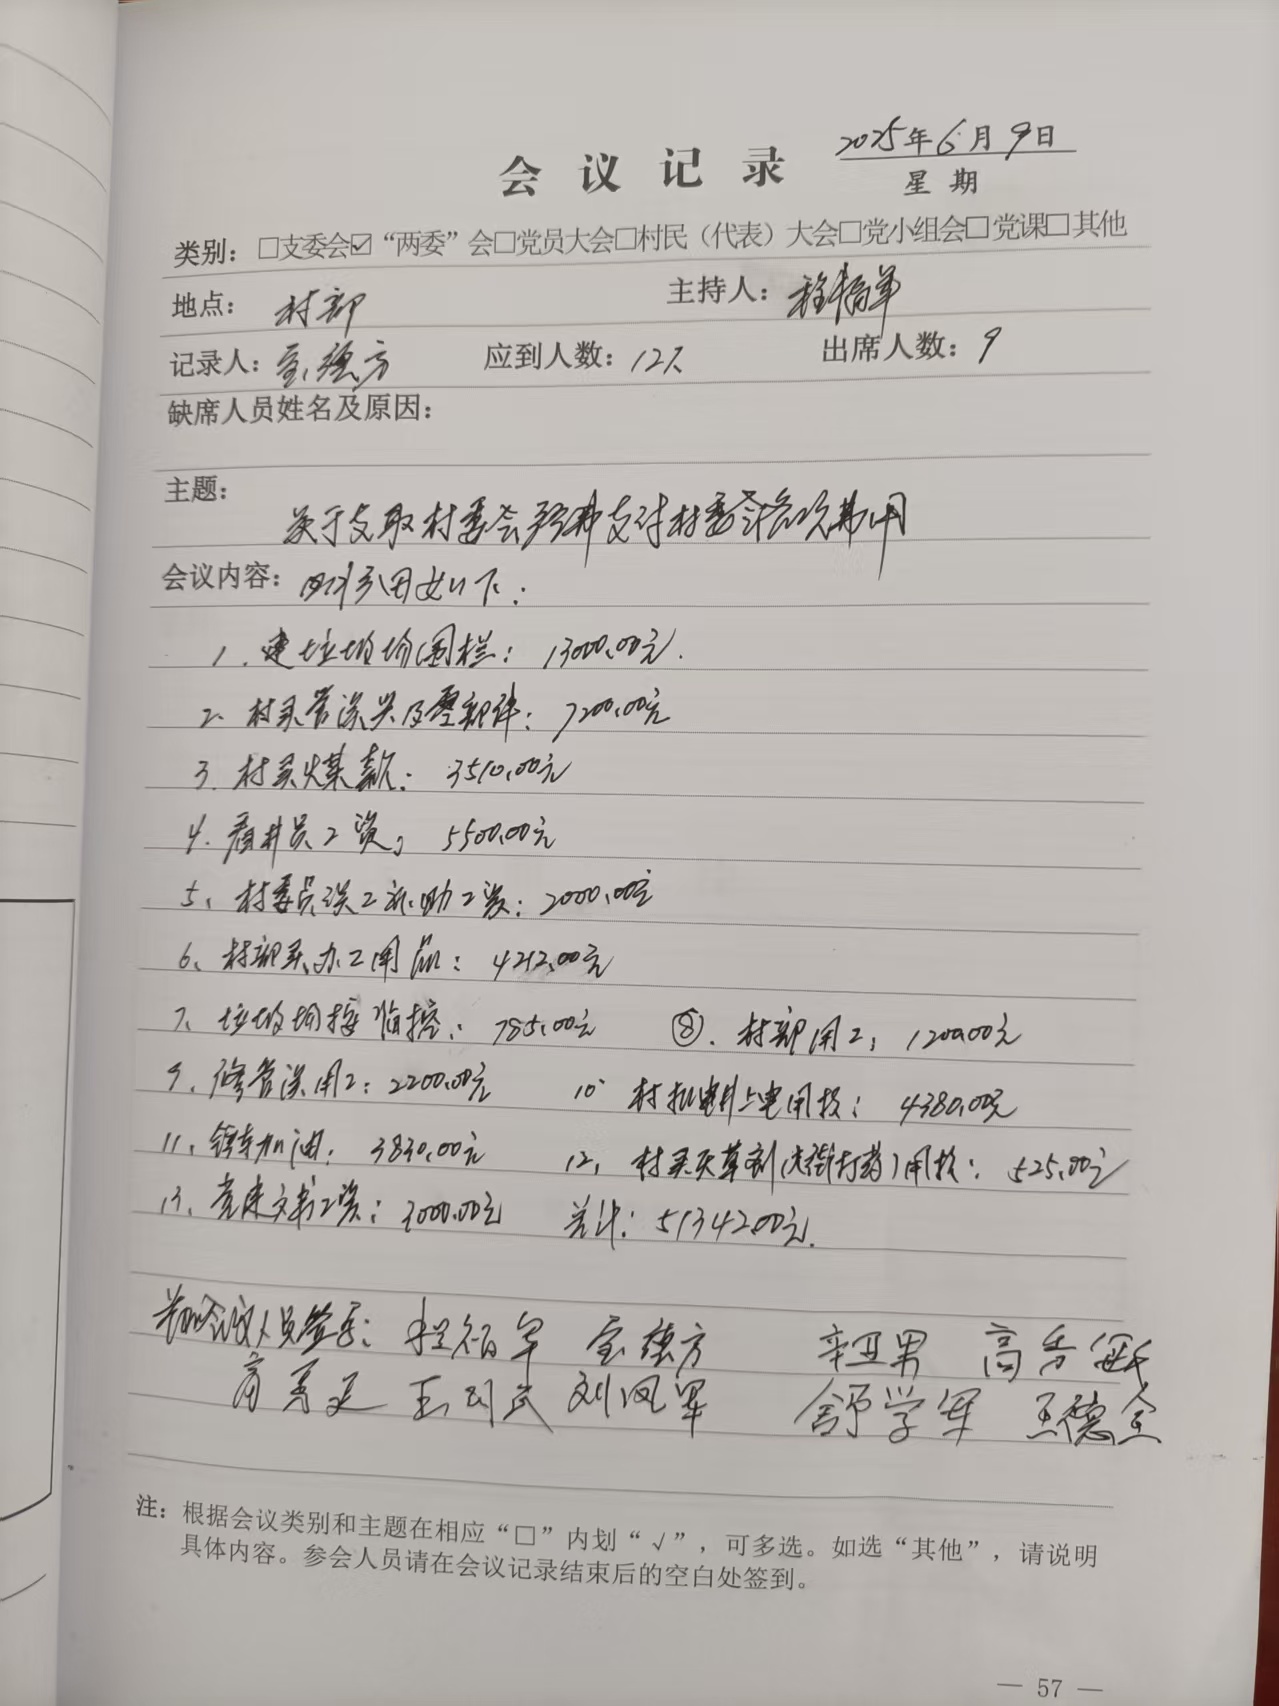 会议记录 2025年6月9日
星期
类别：□支委会☑“两委”会□党员大会□村民（代表）大会□党小组会□党课□其他
地点：村部 主持人：
记录人：方 应到人数：12人 出席人数：9
缺席人员姓名及原因：
主题：
关于支取村委会经费支付村委会各项费用
会议内容：如下：
1.建垃圾场围栏：13000.00元.
2.村买管及零部件：7200.00元
3.村买煤款：3510.00元
4.看井员工资：5500.00元
5、村委员误工补助工资：2000.00元
6、村部买办工用品：4212.00元
7、垃圾场按监控：785.00元 ⑧.村部用工：1200.00元
9、修管用工：2200.00元 10 村机电井上电用款：4380.00元
11、铲车加油：3830.00元 12、村买灭草剂(大街打药)用款：525.00元
13、党建文书工资：3000.00元 总计：51342.00元.
参加会议人员签字：方 辛亚男 高香
王 刘凤军 舒学军 王德全
注：根据会议类别和主题在相应“□”内划“√”，可多选。如选“其他”，请说明
具体内容。参会人员请在会议记录结束后的空白处签到。
— 57 —